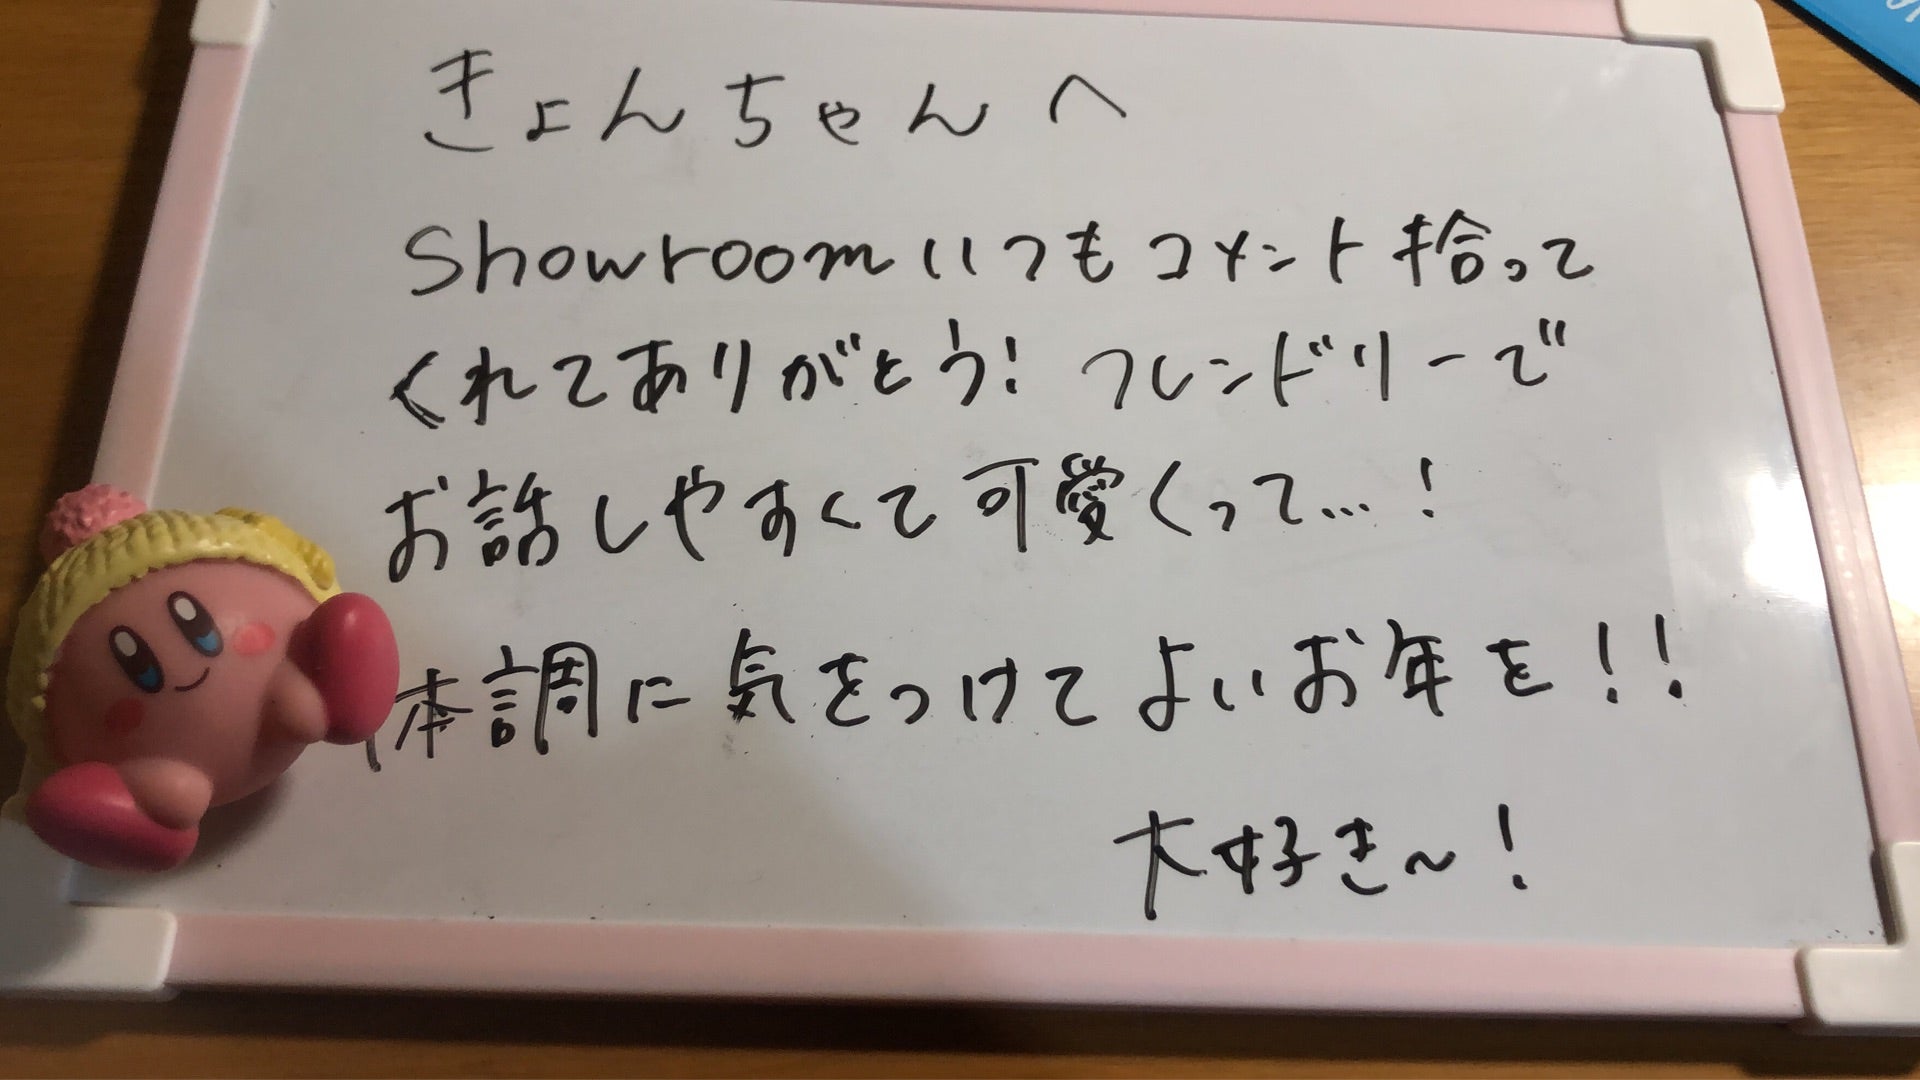 きょんちゃんへ
Showroomいつもコメント拾って
くれてありがとう! フレンドリーで
お話しやすくて可愛くって…!
体調に気をつけてよいお年を!!
大好き〜!